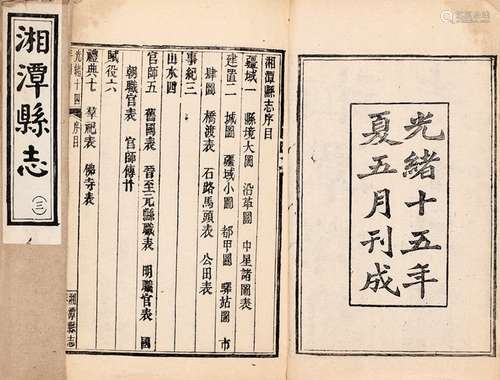 光緒十五年
夏五月刊成
湘潭縣志序目
疆域一 縣境大圖 沿革圖 中星諸圖表
建置二 城圖 疆域小圖 都甲圖 驛站圖 市
肆圖 橋渡表 石路馬頭表 公田表
事紀三
山水四
官師五 舊國表 晉至元縣職表 明職官表 國
朝職官表 官師傳廿
賦役六
禮典七 羣祀表 佛寺表
湘潭縣志
序目
湘潭縣志
(三)